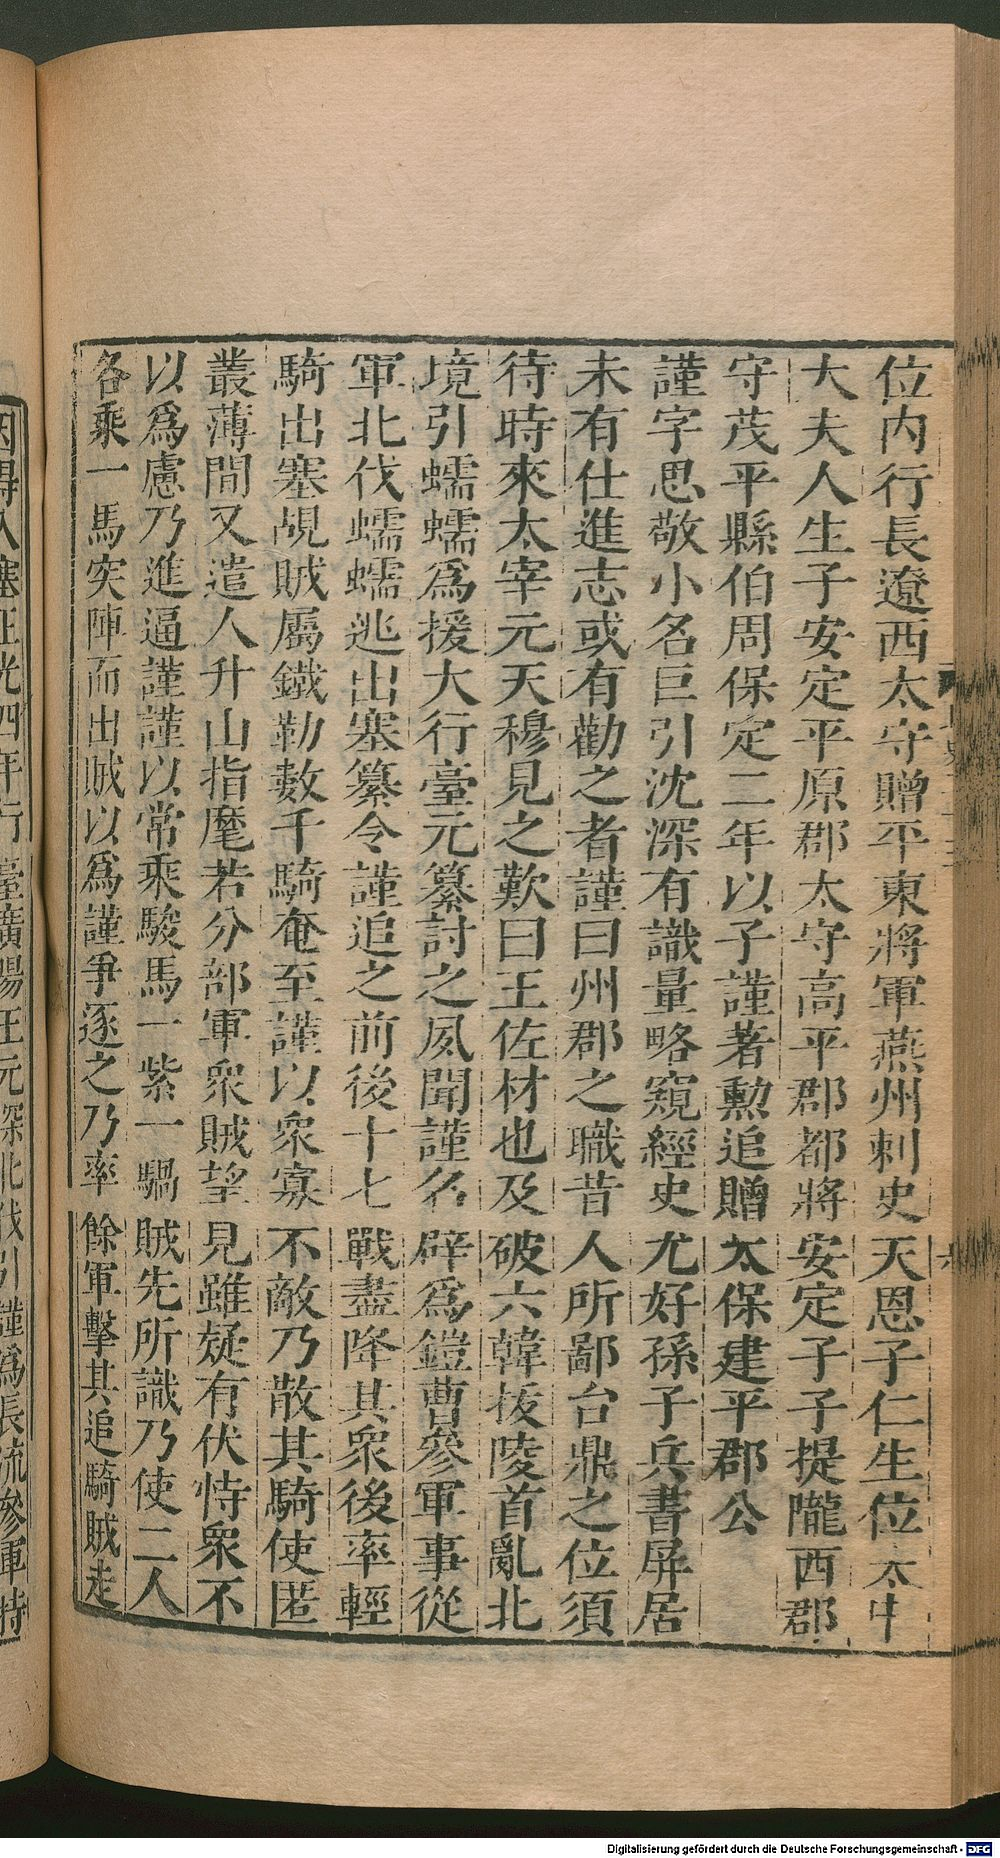 位內行長遼西太守贈平東將軍燕州刺史天恩子仁生位太中
大夫人生子安定平原郡太守高平郡都將安定子子提隴西郡
守茂平縣伯周保定二年以子謹著勲追贈太保建平郡公
謹字思敬小名巨引沈深有識量略窺經史尤好孫子兵書屏居
未有仕進志或有勸之者謹曰州郡之職昔人所鄙台鼎之位須
待時來太宰元天穆見之歎曰王佐材也及破六韓拔陵首亂北
境引蠕蠕爲援大行臺元纂討之夙聞謹名辟爲鎧曹參軍事從
軍北伐蠕蠕逃出塞纂令謹追之前後十七戰盡降其衆後率輕
騎出塞覘賊屬鐵勒數千騎奄至謹以衆寡不敵乃散其騎使匿
叢薄間又遣人升山指麾若分部軍衆賊望見雖疑有伏恃衆不
以爲慮乃進逼謹謹以常乘駿馬一紫一騧賊先所識乃使二人
各乘一馬突陣而出賊以爲謹爭逐之乃率餘軍擊其追騎賊走
因得入塞正光四年行臺廣陽王元深北伐引謹爲長流參軍特
Digitalisierung gefördert durch die Deutsche Forschungsgemeinschaft - DFG